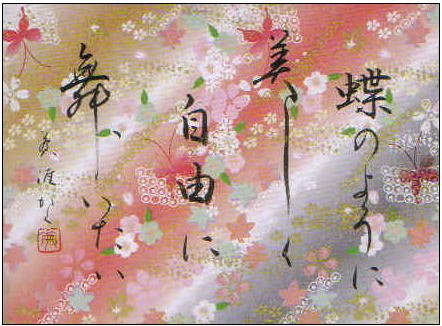 蝶のように
美しく
自由に
舞いたい